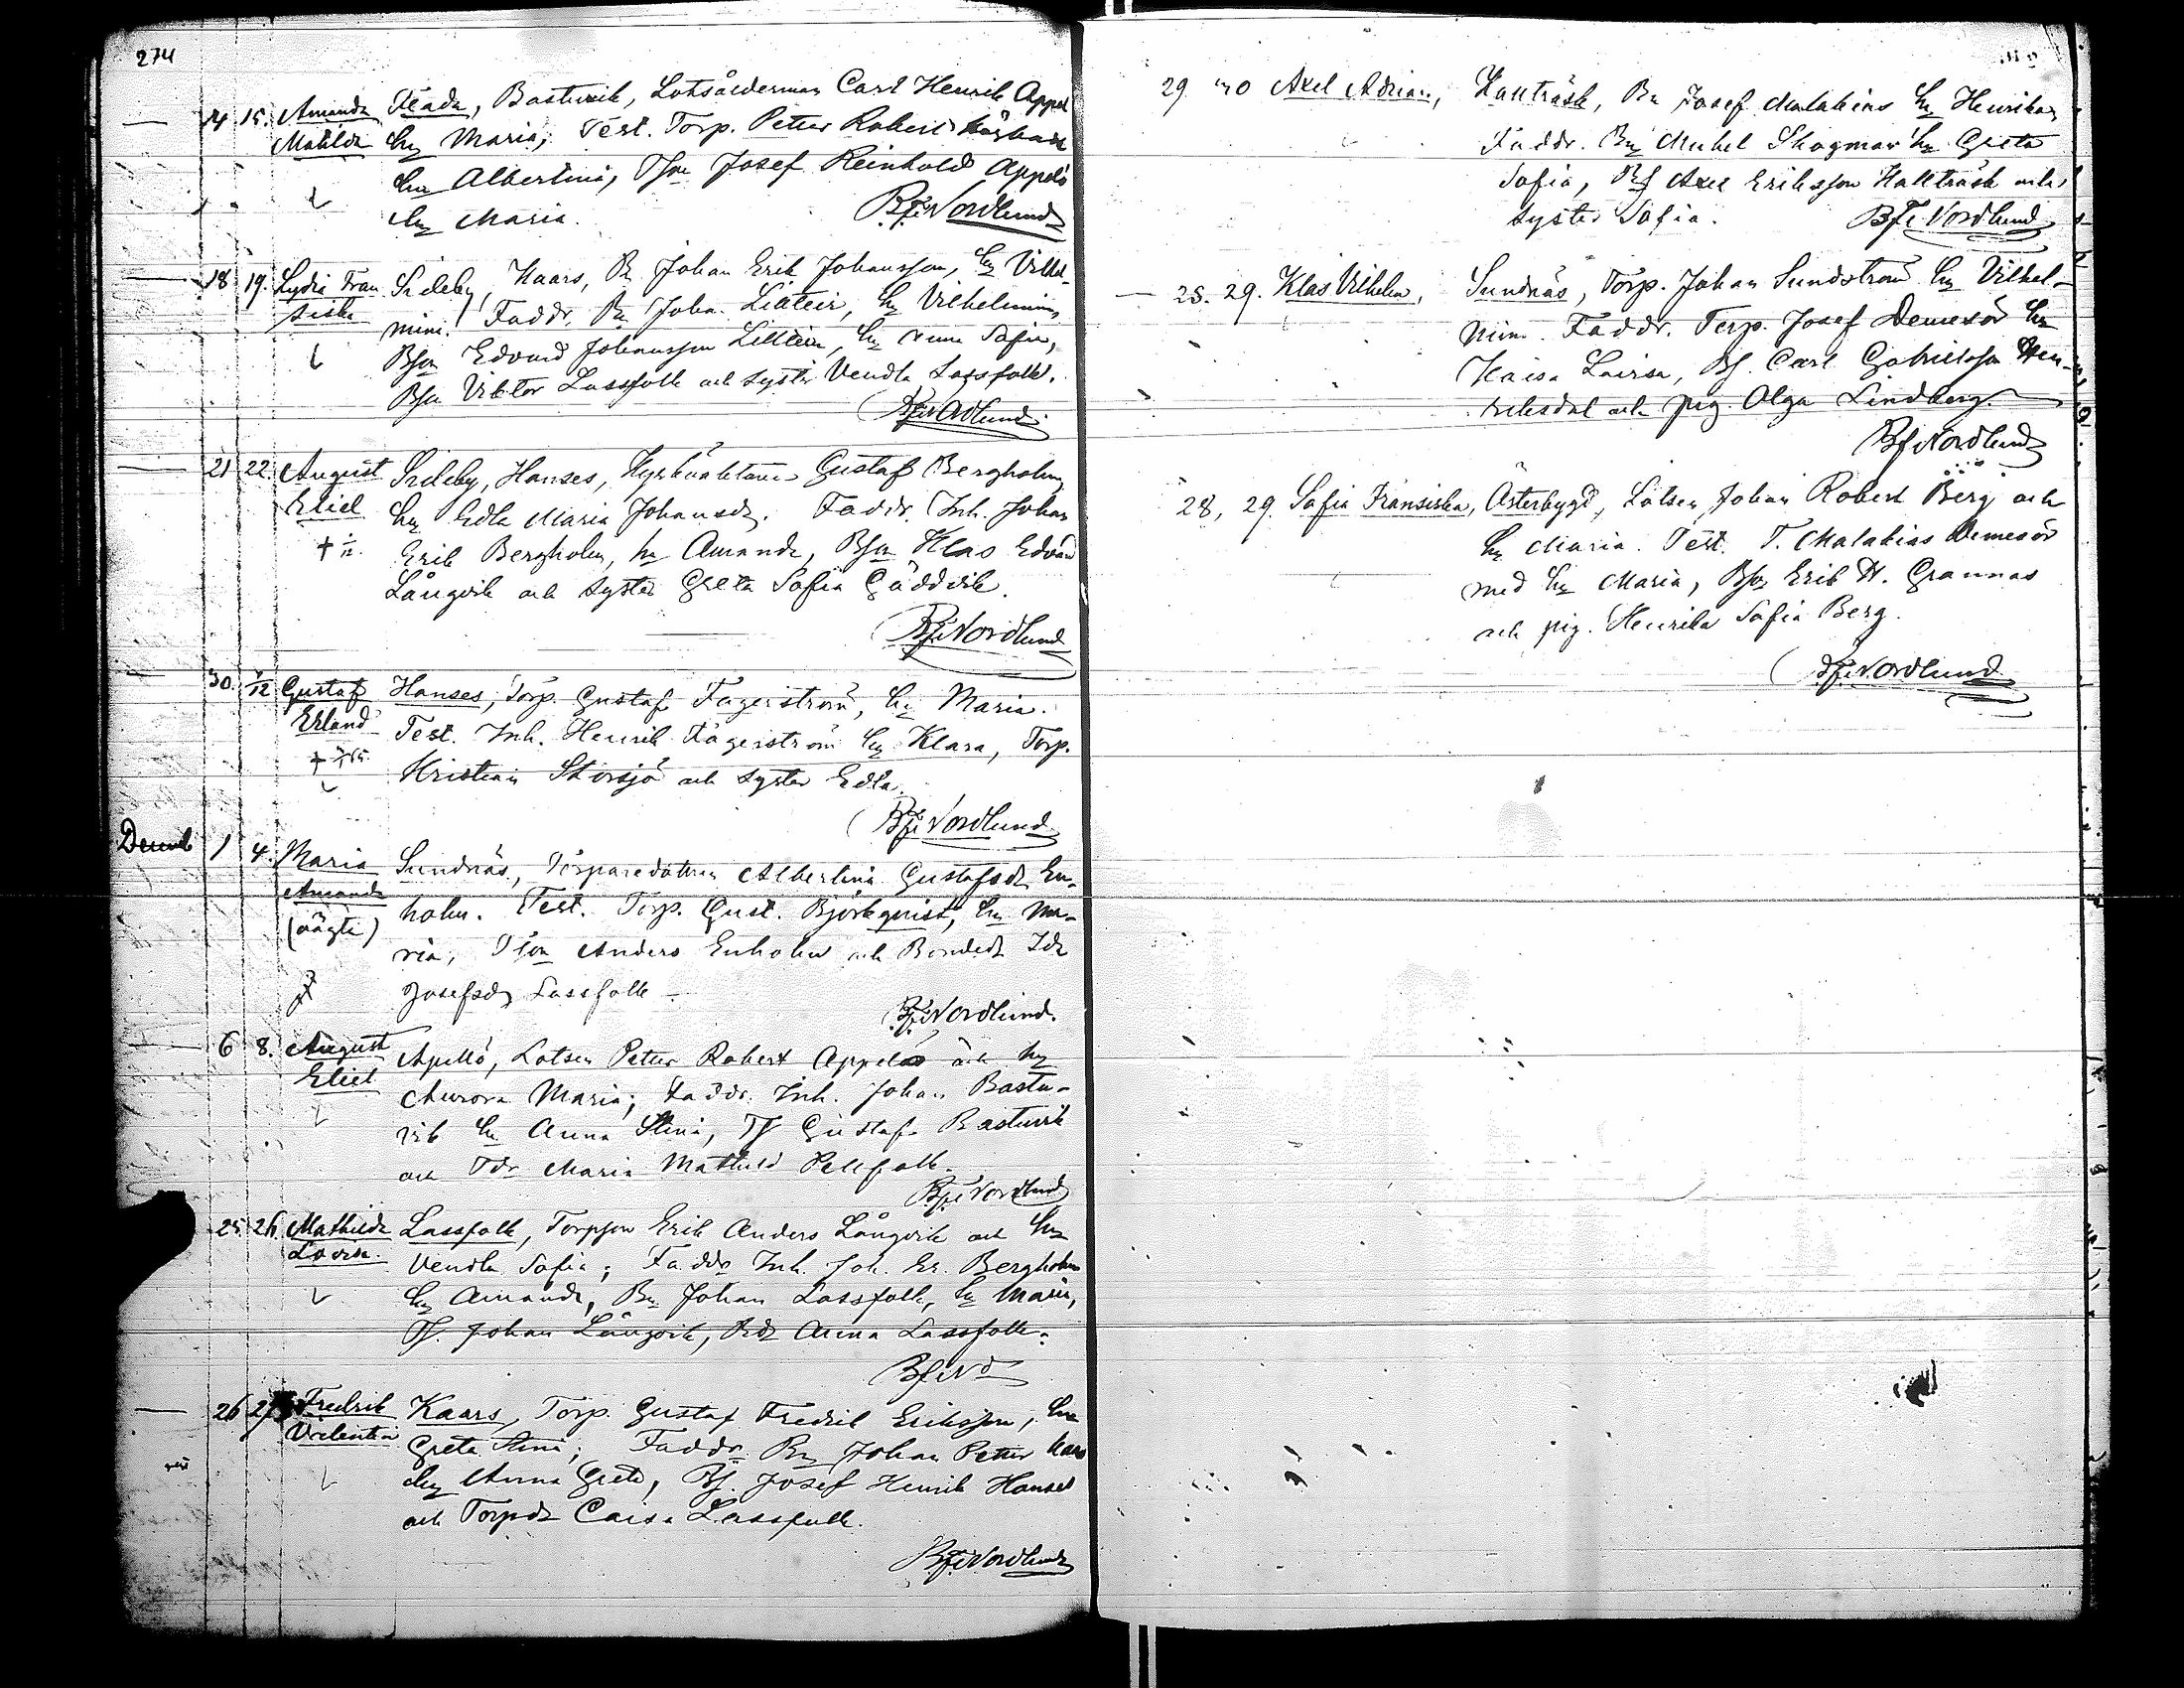 274
14 15. Amanda Flada, Bastuvik, Lotsålderman Carl Henrik Appel
Matilda hu Maria; Test. Torp. Petter Robert
hu Albertina, Tson Josef Reinhold Appelö
hu Maria. BFr Nordlund
18 19. Lydia Fran Sideby, Kaars, Bn Johan Erik Johansson, hu Vilhel-
siska mina. Faddr. Bn Johan Lillteir, hu Vilhelmina,
Bson Edvard Johansson Lillteir, hu Anna Sofia,
Bson Viktor Lassfolk och syster Vendla Lassfolk.
BFr Nordlund
21 22. August Sideby, Hanses, Kyrkväktaren Gustaf Bergholm,
Eliel hu Edla Maria Johansdr. Faddr. Inh. Johan
Erik Bergholm, hu Amanda, Bson Klas Edvard
Långvik och syster Greta Sofia Gäddvik.
BFr Nordlund
30. 1/12 Gustaf Hanses, Torp. Gustaf Fagerström, hu Maria.
Erland Test. Inh. Henrik Fagerström hu Klara, Torp.
Kristian Storsjö och syster Edla.
BFr Nordlund
Decemb 1 4. Maria Sundnäs, Torparedottren Albertina Gustafsdr En-
Amanda holm. Test. Torp. Gust. Björkqvist, hu Ma-
(oägta) ria, Tson Anders Enholm och Bondedr Ida
Josefsdr Lassfolk
BFr Nordlund.
6 8. August Apellö, Lotsen Petter Robert Appelö och hu
Eliel Aurora Maria; Faddr. Inh. Johan Bastu-
vik hu Anna Stina, TS Gustaf Bastuvik
och Tdr Maria Mathild Pellfolk.
BFr Nordlund
25. 26. Mathilda Lassfolk, Torpson Erik Anders Långvik och hu
Lovisa. Vendla Sofia; Faddr Inh. Joh. Er. Bergholm
hu Amanda, Bn Johan Lassfolk, hu Maria,
TS. Johan Långvik, Bdr Anna Lassfolk.
BFr Nd
26 27 Fredrik Kaars, Torp. Gustaf Fredrik Eriksson, hu
Valentin Greta Stina; Faddr. Bn Johan Petter Kaars
hu Anna Greta, BS. Josef Henrik Hanses
och Torpdr Caisa Lassfolk.
BFr Nordlund
29 Axel Adrian, Hallträsk, Bn Josef Malakias hu Henrika,
Faddr. Bn Mickel Skogman hu Greta
Sofia, BS Axel Eriksson Hallträsk och
syster Sofia. BFr Nordlund
25. 29. Klas Vilhelm, Sundnäs, Torp. Johan Sundström hu Vilhel-
mina. Faddr. Torp. Josef Demesör hu
Kaisa Lovisa, BS. Carl Gabrielsson Hen-
riksdal och pig. Olga Lindberg.
BFr Nordlund
28, 29. Sofia Fransiska, Österbygd, Lotsen Johan Robert Berg och
hu Maria. Test. T. Malakias Demesör
med hu Maria, Bson Erik W. Grannas
och pig. Henrika Sofia Berg.
BFr Nordlund